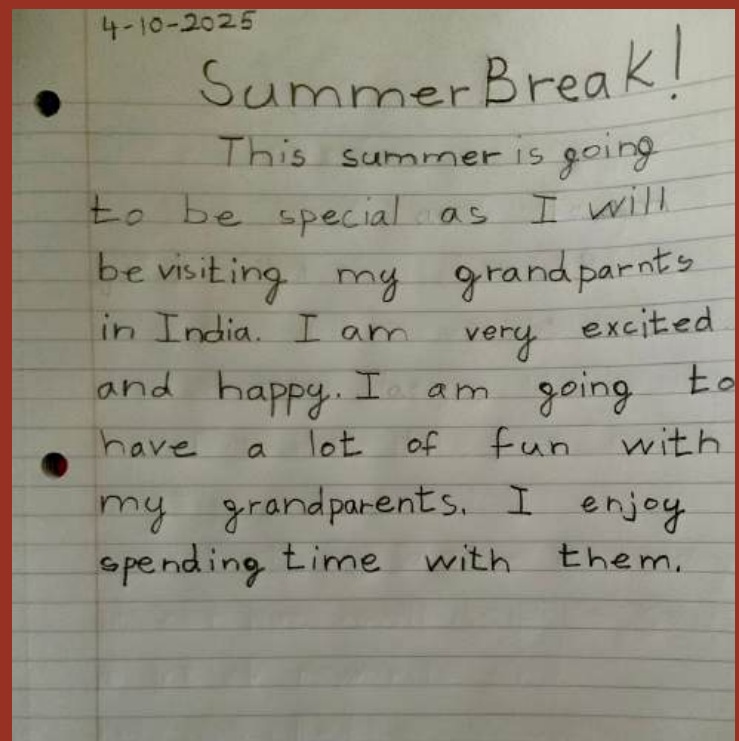 4-10-2025
Summer Break!
This summer is going
to be special as I will
be visiting my grandparnts
in India. I am very excited
and happy. I am going to
have a lot of fun with
my grandparents. I enjoy
spending time with them.